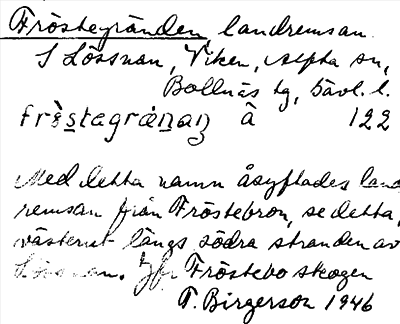 Fröstegränden landremsan.
S Lössnan, Viken, Alfta sn,
Bollnäs tg, Gävl. l.
frö̀stagrä́nan å 122
Med detta namn åsyftades land
remsan från Fröstebron, se detta,
västerut längs södra stranden av
Lössnan. Jfr Fröstebo skogen
T. Birgerson 1946